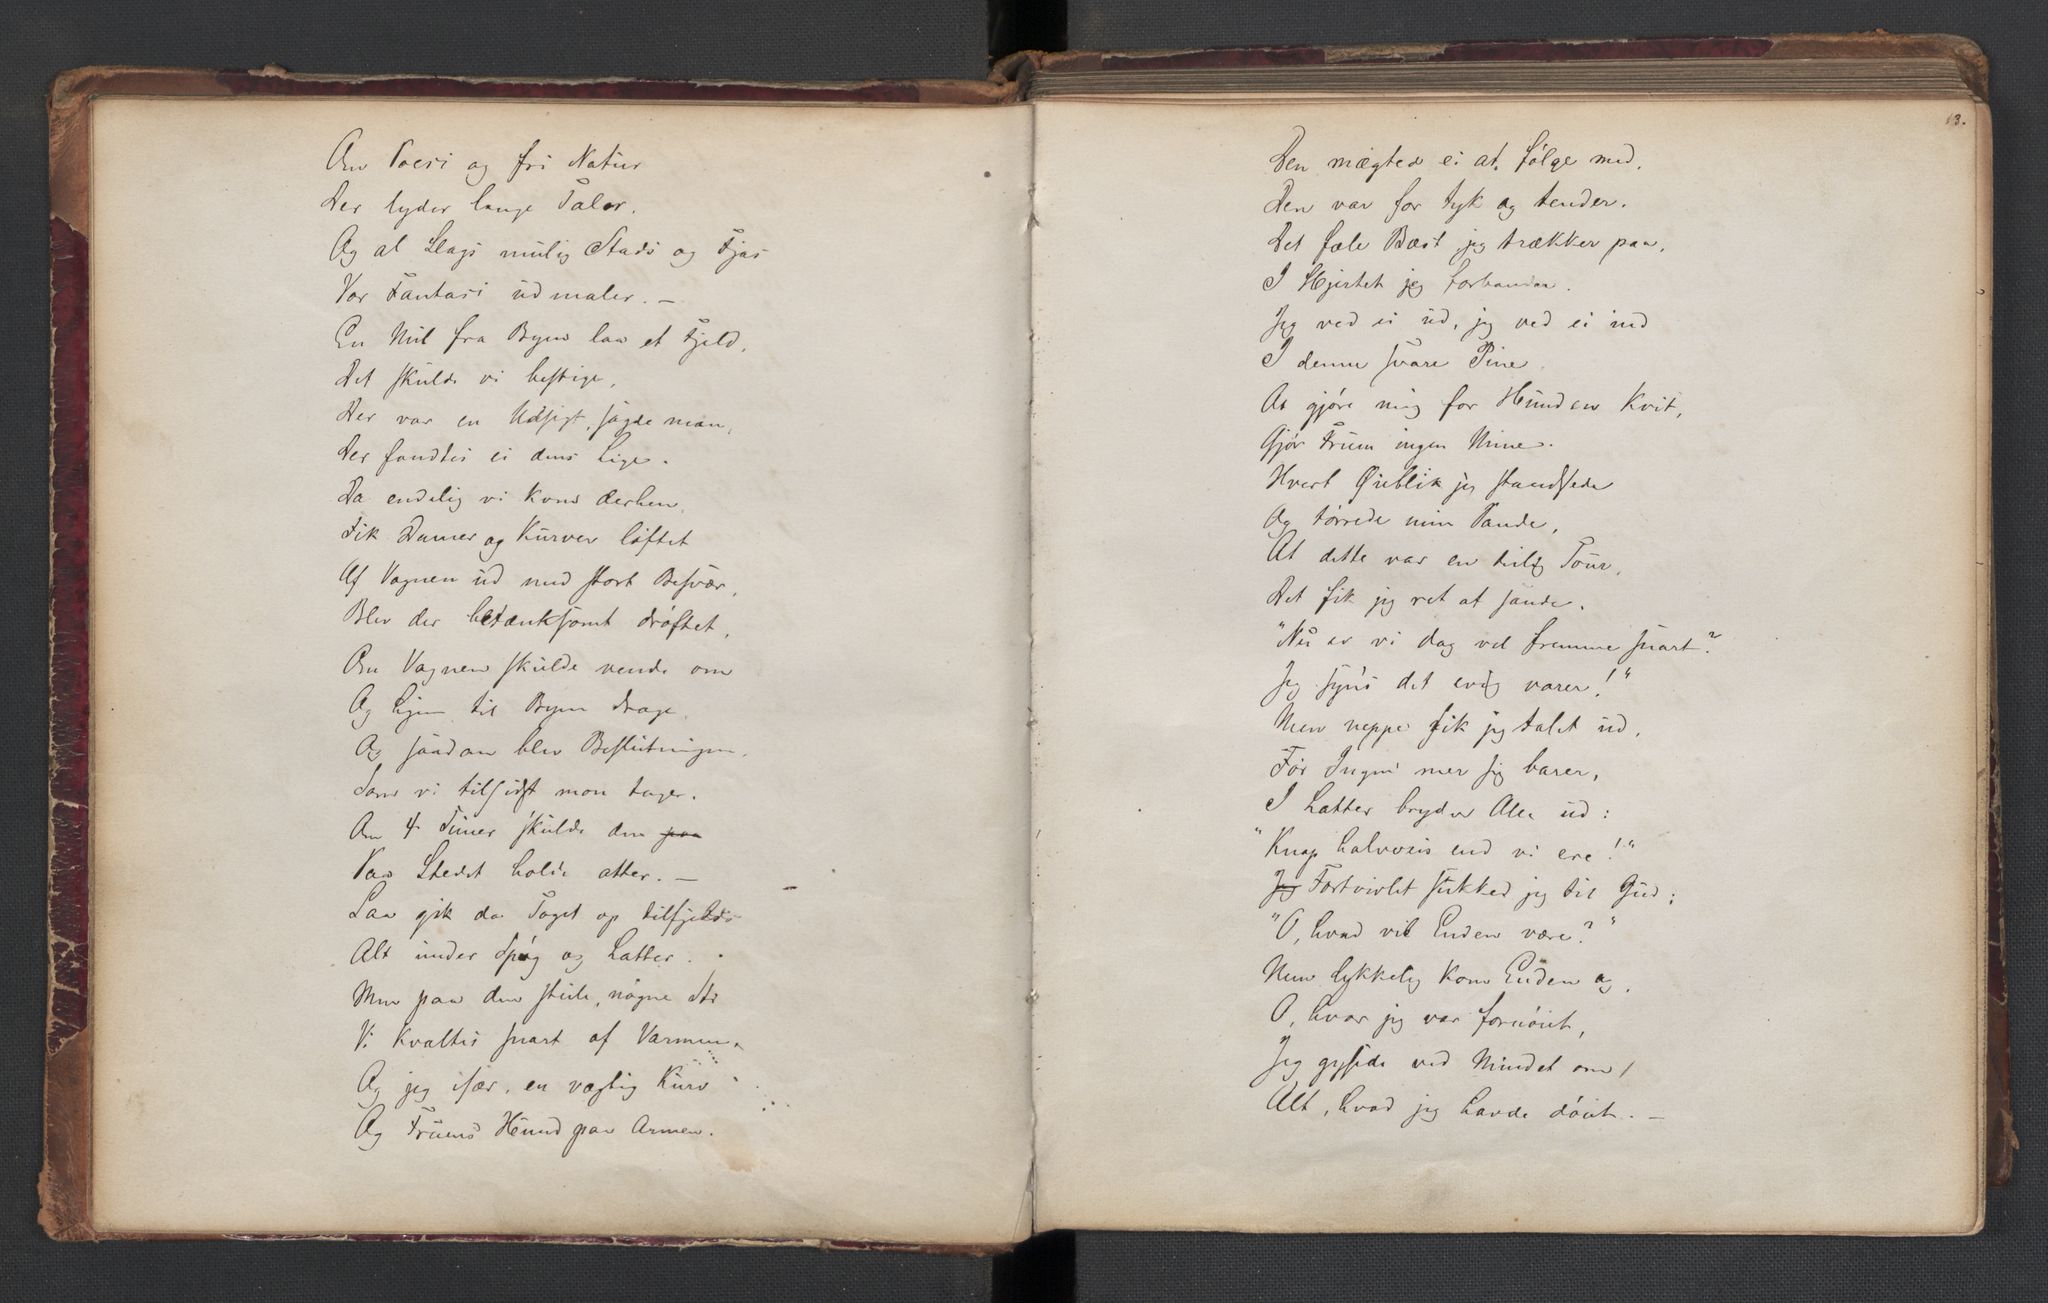 Om Poesi og fri Natur
Der lyder lange Taler,
Og al Slags mulig Stads og Fjas
Vor Fantasi udmaler. —
En Mil fra Byen laa et Fjeld,
Det skulde vi bestige,
Der var en Udsigt, sagde man,
Der fandtes ei dens Lige.
Da endelig vi kom derhen,
Fik Damer og Kurver løftet
Af Vognen ud med stort Besvær,
Blev der betænksomt drøftet,
Om Vognen skulde vende om
Og hjem til Byen drage,
Og saadan blev Beslutningen,
Som vi tilsidst mon tage.
Om 4 Timer skulde den paa
Paa Stedet holde atter. —
Saa gik da Toget op tilfjelds
Alt under Spøg og Latter.
Men paa den steile, nøgne Sti
Vi kvaltes snart af Varmen,
Og jeg især, en vægtig Kurv
Og Fruens Hund paa Armen.
13.
Den mægted ei at følge med,
Den var for tyk og tender.
Det fæle Bæst jeg trækker paa,
I Hjertet jeg forbander.
Jeg ved ei ud, jeg ved ei ind
I denne svare Pine,
At gjøre mig for Hunden kvit,
Gjør Fruen ingen Mine.
Hvert Øieblik jeg standsede
Og tørrede min Pande,
At dette var en deilig Tour,
Det fik jeg ret at sande.
"Nu er vi dog vel fremme snart?
Jeg synes det evig varer!"
Men neppe fik jeg talet ud,
Før Ingen mer sig barer,
I Latter bryder Alle ud:
"Knap halvveis end vi ere!"
Jeg Fortvivlet sukked jeg til Gud;
"O, hvad vil Enden være?"
Men lykkelig kom Enden og,
O, hvor jeg var fornøiet,
Jeg gyste ved Mindet om
Alt, hvad jeg havde døiet. —